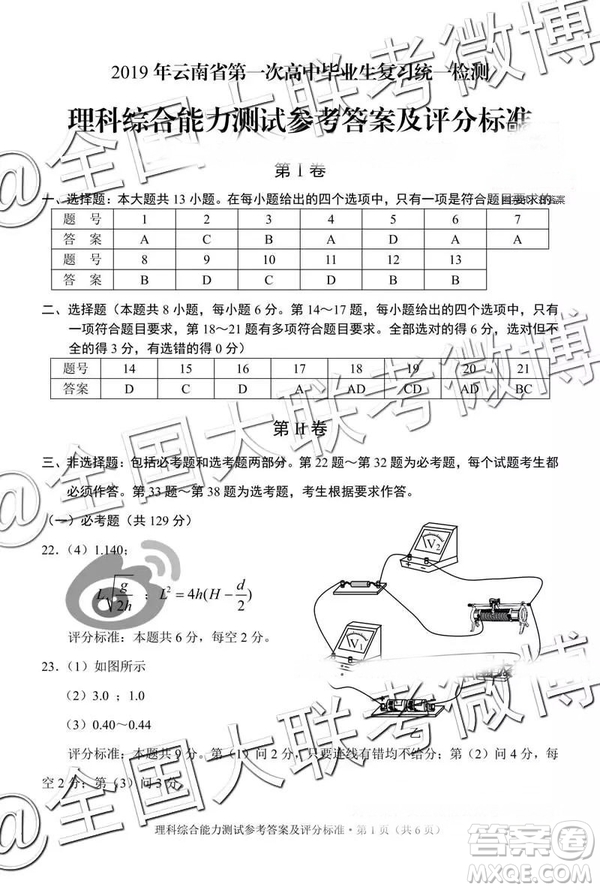 2019 年云南省第一次高中毕业生复习统一检测
理科综合能力测试参考答案及评分标准
第 I 卷
一、选择题：本大题共 13 小题。在每小题给出的四个选项中，只有一项是符合题目要求的。
题 号 1 2 3 4 5 6 7
答 案 A C B A D A A
题 号 8 9 10 11 12 13
答 案 B D C B B D
二、选择题（本题共 8 小题，每小题 6 分。第 14～17 题，每小题给出的四个选项中，只有
一项符合题目要求，第 18～21 题有多项符合题目要求。全部选对的得 6 分，选对但不
全的得 3 分，有选错的得 0 分）
题号 14 15 16 17 18 19 20 21
答案 D C D D AD CD AD BC
第 II 卷
三、非选择题：包括必考题和选考题两部分。第 22 题～第 32 题为必考题，每个试题考生都
必须作答。第 33 题～第 38 题为选考题，考生根据要求作答。
（一）必考题（共 129 分）
22.（4）1.140；
L√(g/2h) ；L²=4h(H-d/2)
评分标准：本题共 6 分，每空 2 分。
V₂
V₁
乙
23.（1）如图所示
（2）3.0 ；1.0
（3）0.40～0.44
评分标准：本题共 9 分。第（1）问 2 分，只要连线有错均不给分；第（2）问 4 分，每
空 2 分；第（3）问 3 分。
理科综合能力测试参考答案及评分标准·第 1 页（共 6 页）
@全国大联考微博
@全国大联考微博
@全国大联考微博
答案圈
MXQE.COM